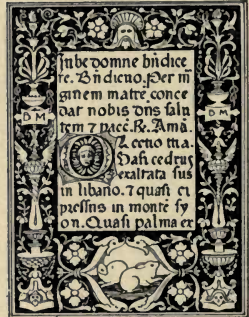 Iube domne bñdice
re. Bñdictio. Per uir̃
ginem matrẽ conce
dat nobis dñs salu
tem ⁊ pacẽ. Re. Amẽ.
Lectio ttia.
Quasi cedrus
exaltata sus
in libano. ⁊ quasi ci
pressus in monte sy
on. Quasi palma ex
D M
D M